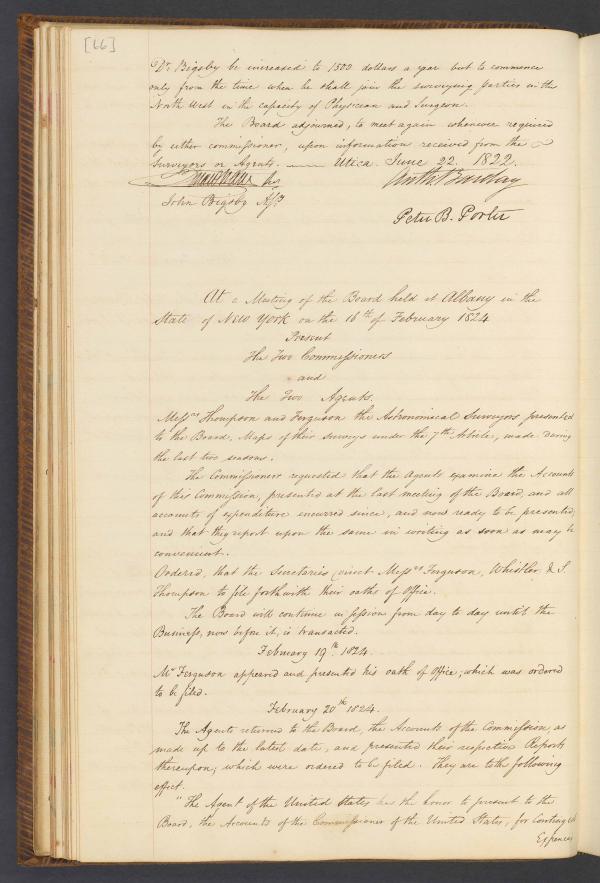 [66]
Dr. Bigsby be increased to 1500 dollars a year but to commence
only from the time when he shall join the surveying parties in the
North West in the capacity of Physician and Surgeon.
The Board adjourned, to meet again whenever required
by either commissioner, upon information received from the
Surveyors or Agents. — Utica June 22. 1822.
Anth. Barclay
John Bigsby Asst.
Peter B. Porter
At a Meeting of the Board held at Albany in the
State of New York on the 16th of February 1824
Present
The Two Commissioners
and
The Two Agents.
Messrs Thompson and Ferguson the Astronomical Surveyors presented
to the Board, Maps of their surveys under the 7th Article, made during
the last two seasons.
The Commissioners requested that the Agents examine the Accounts
of this Commission, presented at the last meeting of the Board, and all
accounts of expenditure incurred since, and now ready to be presented,
and that they report upon the same in writing as soon as may be
convenient.
Ordered, that the Secretaries direct Messrs Ferguson, Whistler & S.
Thompson to file forthwith their oaths of Office.
The Board will continue in session from day to day until the
Business, now before it, is transacted.
February 19th. 1824.
Mr Ferguson appeared and presented his oath of Office; which was ordered
to be filed.
February 20th 1824.
The Agents returned to the Board, the Accounts of the Commission, as
made up to the latest date, and presented their respective Reports
thereupon; which were ordered to be filed. They are to the following
effect.
"The Agent of the United States has the honor to present to the
Board, the Accounts of the Commissioner of the United States, for Contingent
Expences